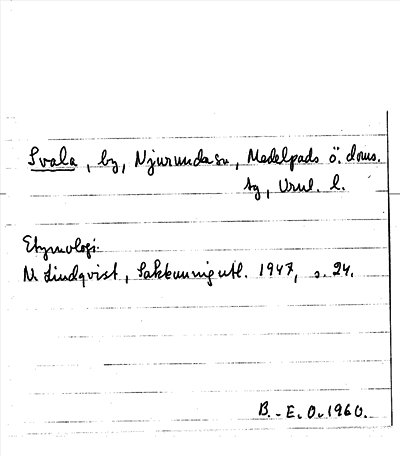 Svala, by, Njurunda sn, Medelpads ö. doms.
sg, Vrnl. l.
Etymologi:
N Lindqvist, Sakkunnigutl. 1947, s. 24.
B.-E. O. 1960.